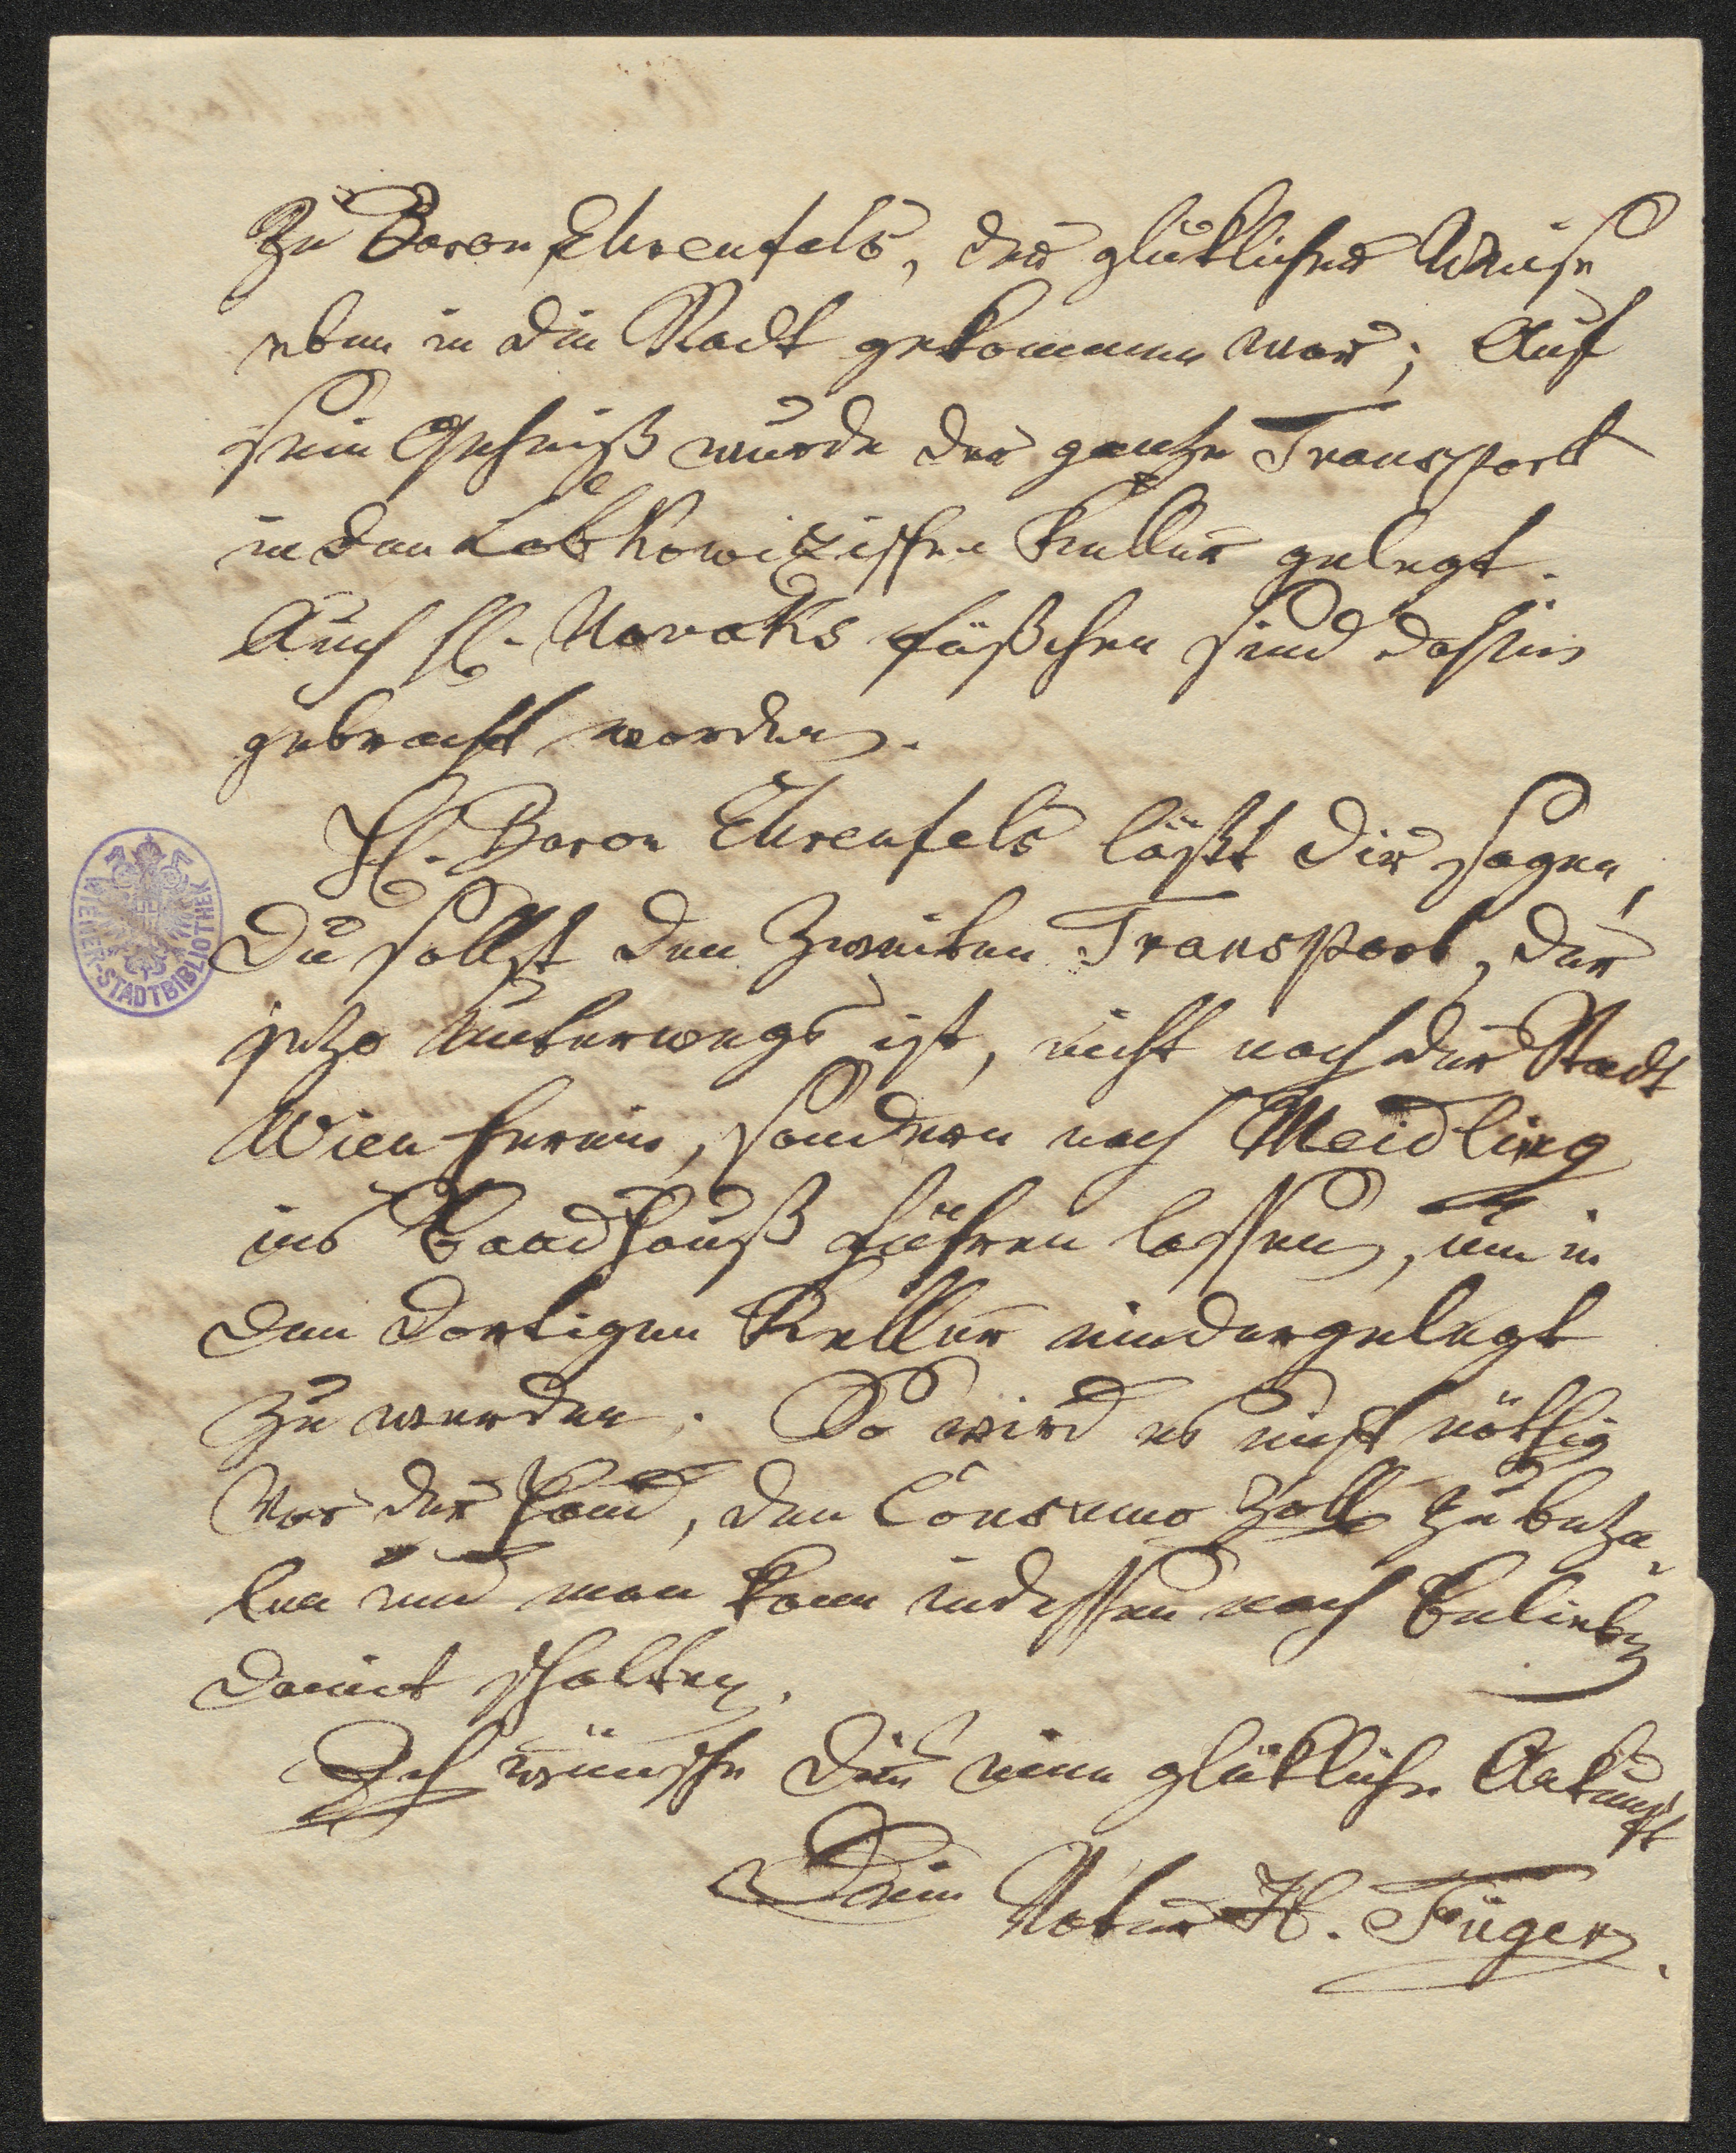 Zu Baron Ehrenfels, der glüklicher Weise
eben in die Stadt gekommen war; Auf
sein Geheiß wurde der gantze Transport
in den Lobkowizischen Keller gelegt.
Auch H. Novaks fäßchen sind dahin
gebracht worden.
H. Baron Ehrenfels läßt Dir sagen,
Du sollst den Zweiten Transport, der
jetzo Unterwegs ist, nicht nach der Stadt
Wien herein, sondern nach Meidling
ins Baadhauß führen lassen, um in
den dortigen Keller niedergelegt
zu werden. So wird es nicht nöthig
Vor der Hand, den Consumo Zoll zu beza-
len und man kann indessen nach Belieben
damit schalten.
Ich wünsche Dir eine glükliche Ankunft
Dein Vater H. Füger.
WIENER-STADTBIBLIOTHEK